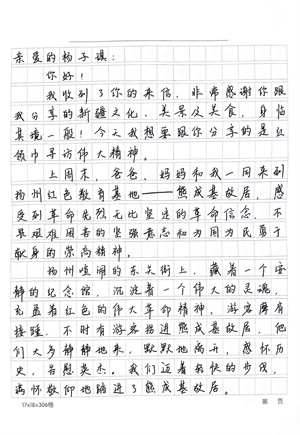 亲爱的杨子琪：
你好！
我收到了你的来信，非常感谢你跟
我分享的新疆文化、美景及美食，身临
其境一般！今天我想要跟你分享的是红
领巾寻访伟大精神。
上周末，爸爸、妈妈和我一同来到
扬州红色教育基地——熊成基故居，感
受到革命先烈无比坚定的革命信念、不
畏艰难困苦的坚强意志和为国为民勇于
献身的崇高精神。
扬州喧闹的东关街上，藏着一个安
静的纪念馆，沉淀着一个伟大的灵魂，
充盈着红色的伟大革命精神，游客摩肩
接踵，不时有游客踏进熊成基故居，他
们大多静静地来，默默地离开，感怀历
史，告慰英杰。我们迈着轻快的步伐，
满怀敬仰地踏进了熊成基故居。
17x18=306格
第 页